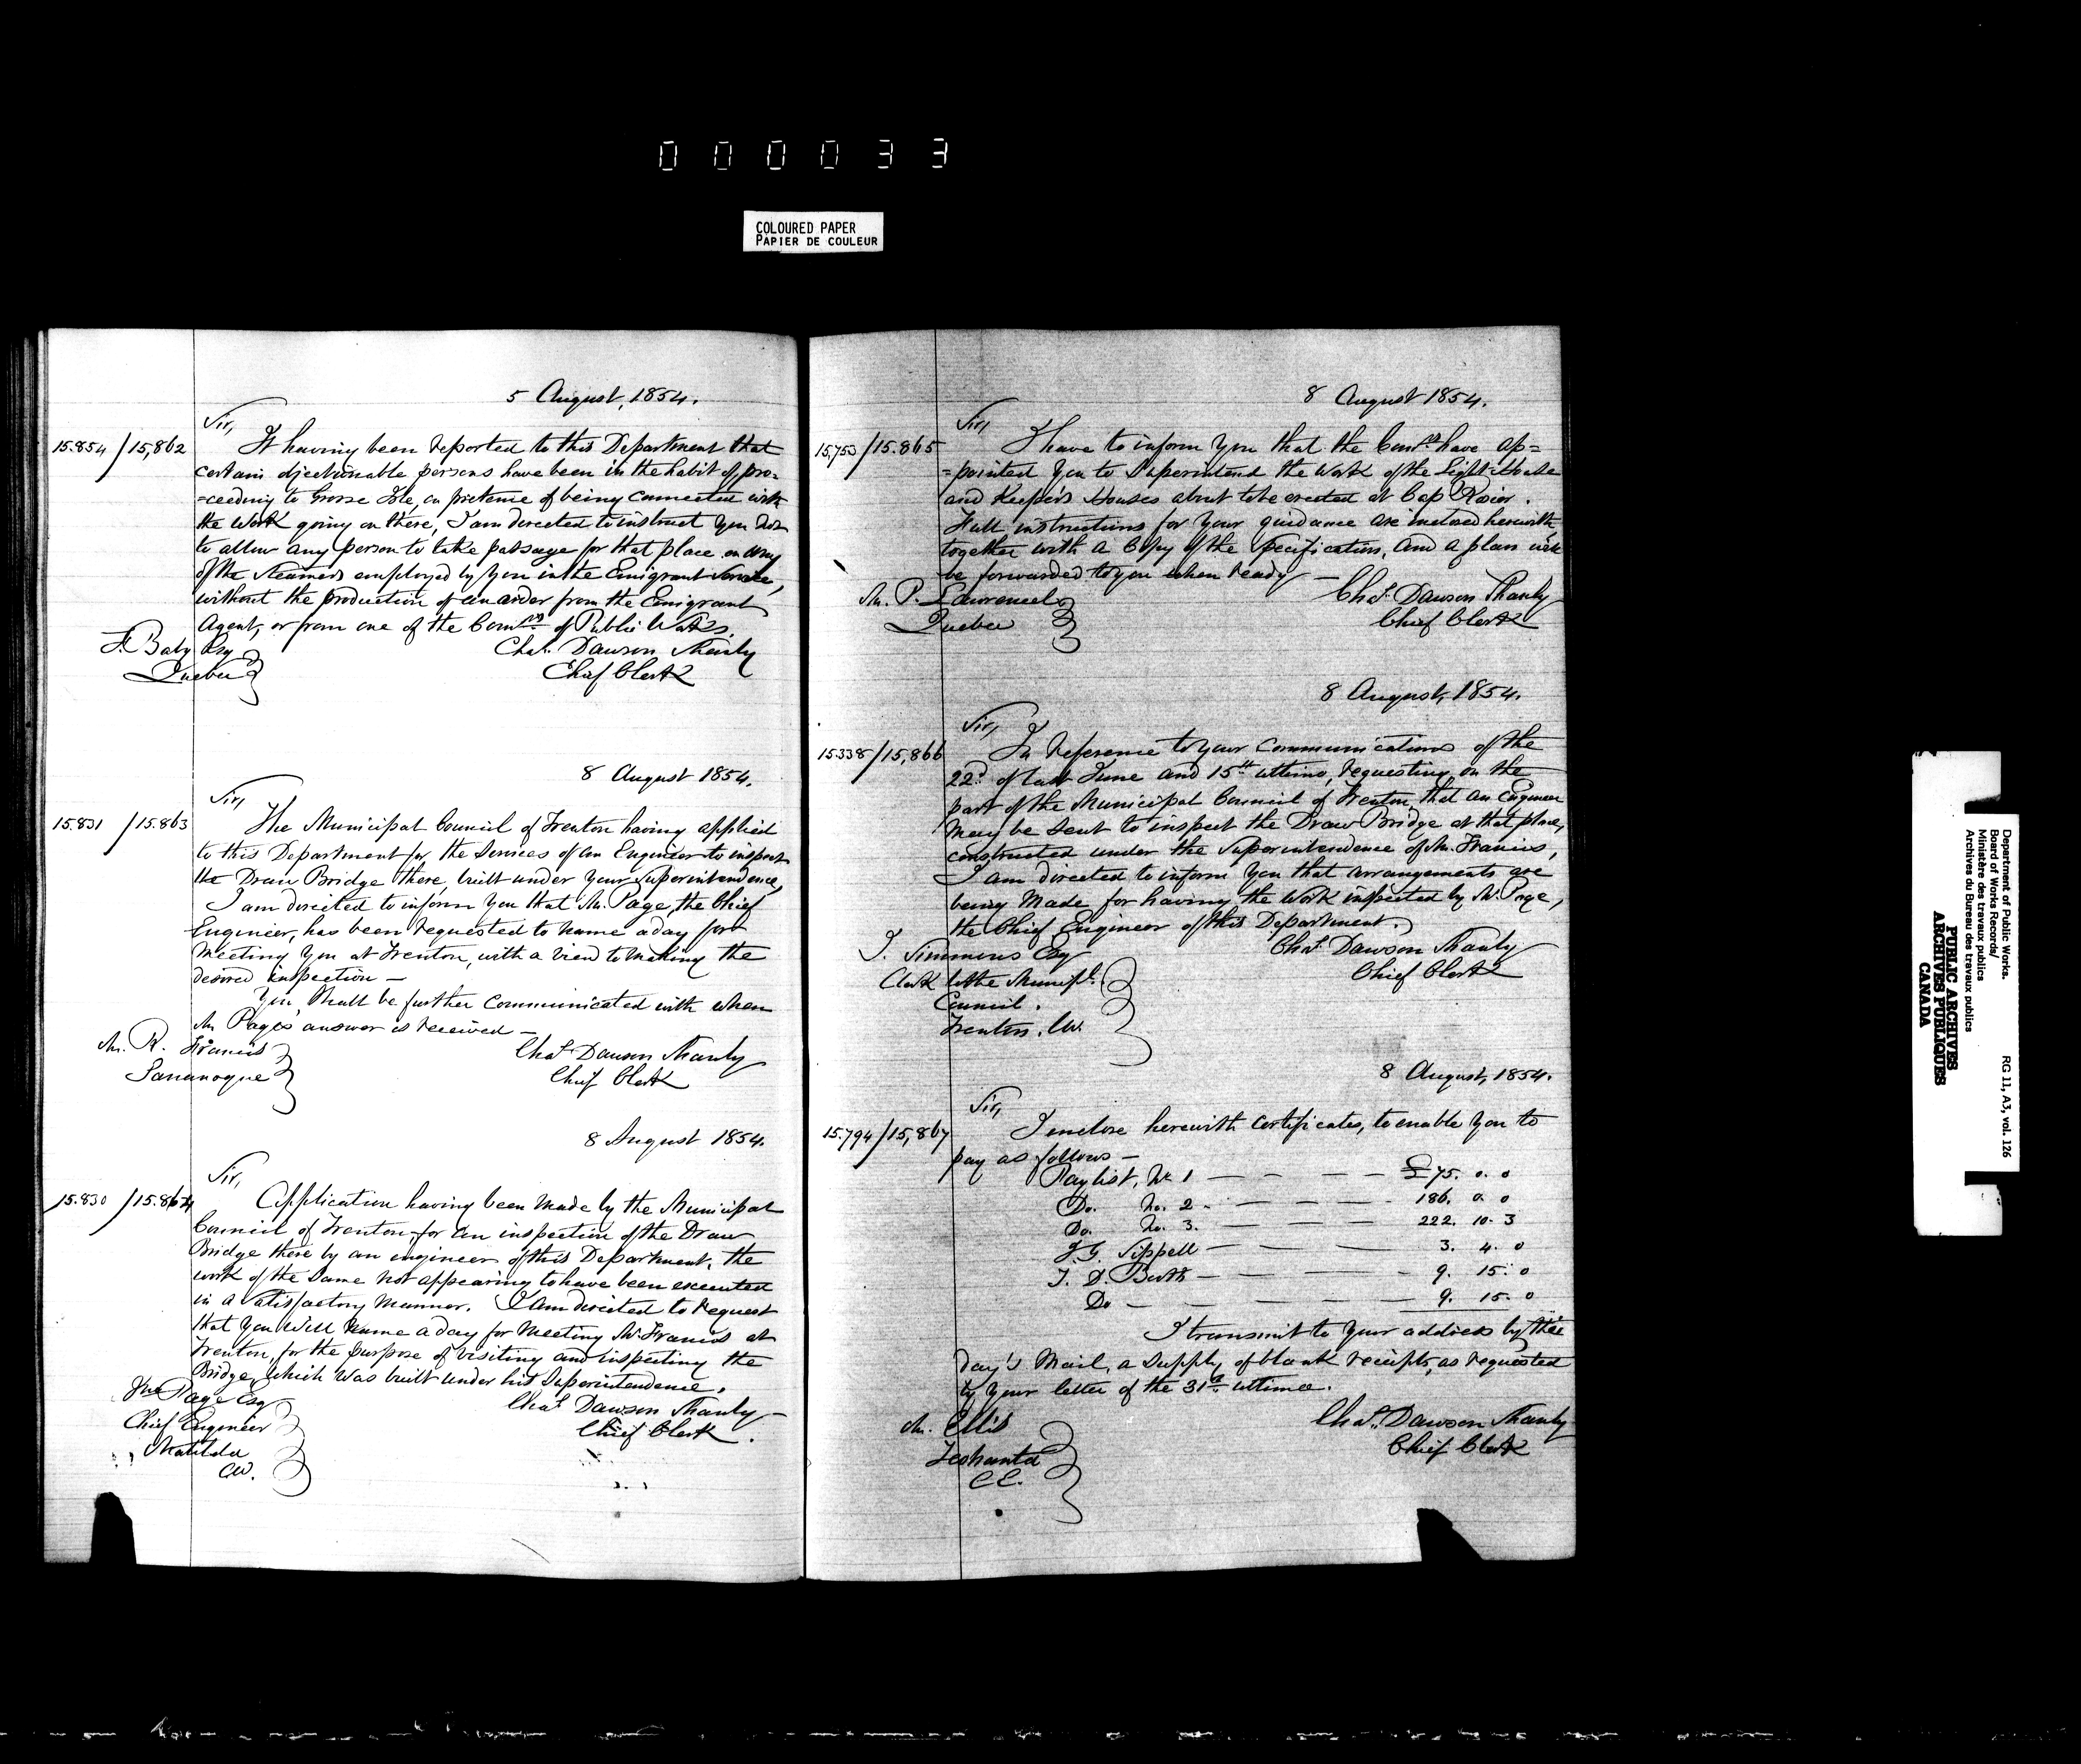 0 0 0 0 3 3
COLOURED PAPER
PAPIER DE COULEUR
5 August, 1854.
Sir,
15.854 / 15,862
It having been reported to this Department that
certain objectionable persons have been in the habit of pro=
=ceeding to Grosse Isle, on pretense of being connected with
the Work going on there, I am directed to instruct you not
to allow any person to take passage for that place on any
of the Steamers employed by you in the Emigrant Service,
without the production of an order from the Emigrant
Agent, or from one of the Comrs of Public Works.
F. Baby Esq
Quebec
Chas. Dawson Shanly
Chief Clerk
8 August 1854.
Sir,
15.831 / 15.863
The Municipal Council of Trenton having applied
to this Department for the Services of an Engineer to inspect
the Draw Bridge there, built under your Superintendence,
I am directed to inform you that Mr. Page, the Chief
Engineer, has been requested to name a day for
Meeting you at Trenton, with a view to making the
desired inspection —
You Shall be further Communicated with when
Mr Page's answer is received —
Mr. R. Francis
Gananoque
Chas. Dawson Shanly
Chief Clerk
8 August 1854.
Sir,
15.830 / 15.864
Application having been made by the Municipal
Council of Trenton, for an inspection of the Draw
Bridge there by an engineer of this Department, the
work of the Same not appearing to have been executed
in a Satisfactory Manner. I am directed to request
that you will name a day for Meeting Mr. Francis at
Trenton, for the purpose of visiting and inspecting the
Bridge, which was built under his Superintendence.
Jno Page Esq
Chief Engineer
Matilda
CW.
Chas Dawson Shanly —
Chief Clerk.
8 August 1854.
Sir,
15,753 / 15.865
I have to inform you that the Comrs have ap=
=pointed you to Superintend the Work of the Light House
and Keepers Houses about to be erected at Cap Rosier.
Full instructions for your guidance are inclosed herewith,
together with a Copy of the Specification, and a plan will
be forwarded to you when ready —
Mr. P. Lawrencel
Quebec
Chas. Dawson Shanly
Chief Clerk
8 August, 1854.
Sir,
15338 / 15,866
In Reference to your Communications of the
22d. of last June and 15th ultimo, requesting, on the
part of the Municipal Council of Trenton, that an Engineer
may be sent to inspect the Draw Bridge at that place,
constructed under the Superintendence of Mr. Francis,
I am directed to inform you that arrangements are
being Made for having the Work inspected by Mr. Page,
the Chief Engineer of this Department.
T. Simmons Esq
Clerk to the Municipl.
Council.
Trenton. CW.
Chas. Dawson Shanly
Chief Clerk
8 August, 1854.
Sir,
15.794 / 15,867
I enclose herewith Certificates, to enable you to
pay as follows —
Paylist, No 1 — — — — £75. 0. 0
Do. No. 2 - — — — — 186. 0. 0
Do. No. 3. — — — — 222. 10. 3
J. G. Sippell — — — — 3. 4. 0
T. D. — — — — 9. 15. 0
Do — — — — 9. 15. 0
I transmit to your address by this
day's Mail, a supply of blank receipts, as requested
by your letter of the 31st ultimo.
Mr. Ellis
C.E.
Chas. Dawson Shanly
Chief Clerk
Department of Public Works.
Board of Works Records/
Ministère des travaux publics
Archives du Bureau des travaux publics
RG 11, A3, vol. 126
PUBLIC ARCHIVES
ARCHIVES PUBLIQUES
CANADA